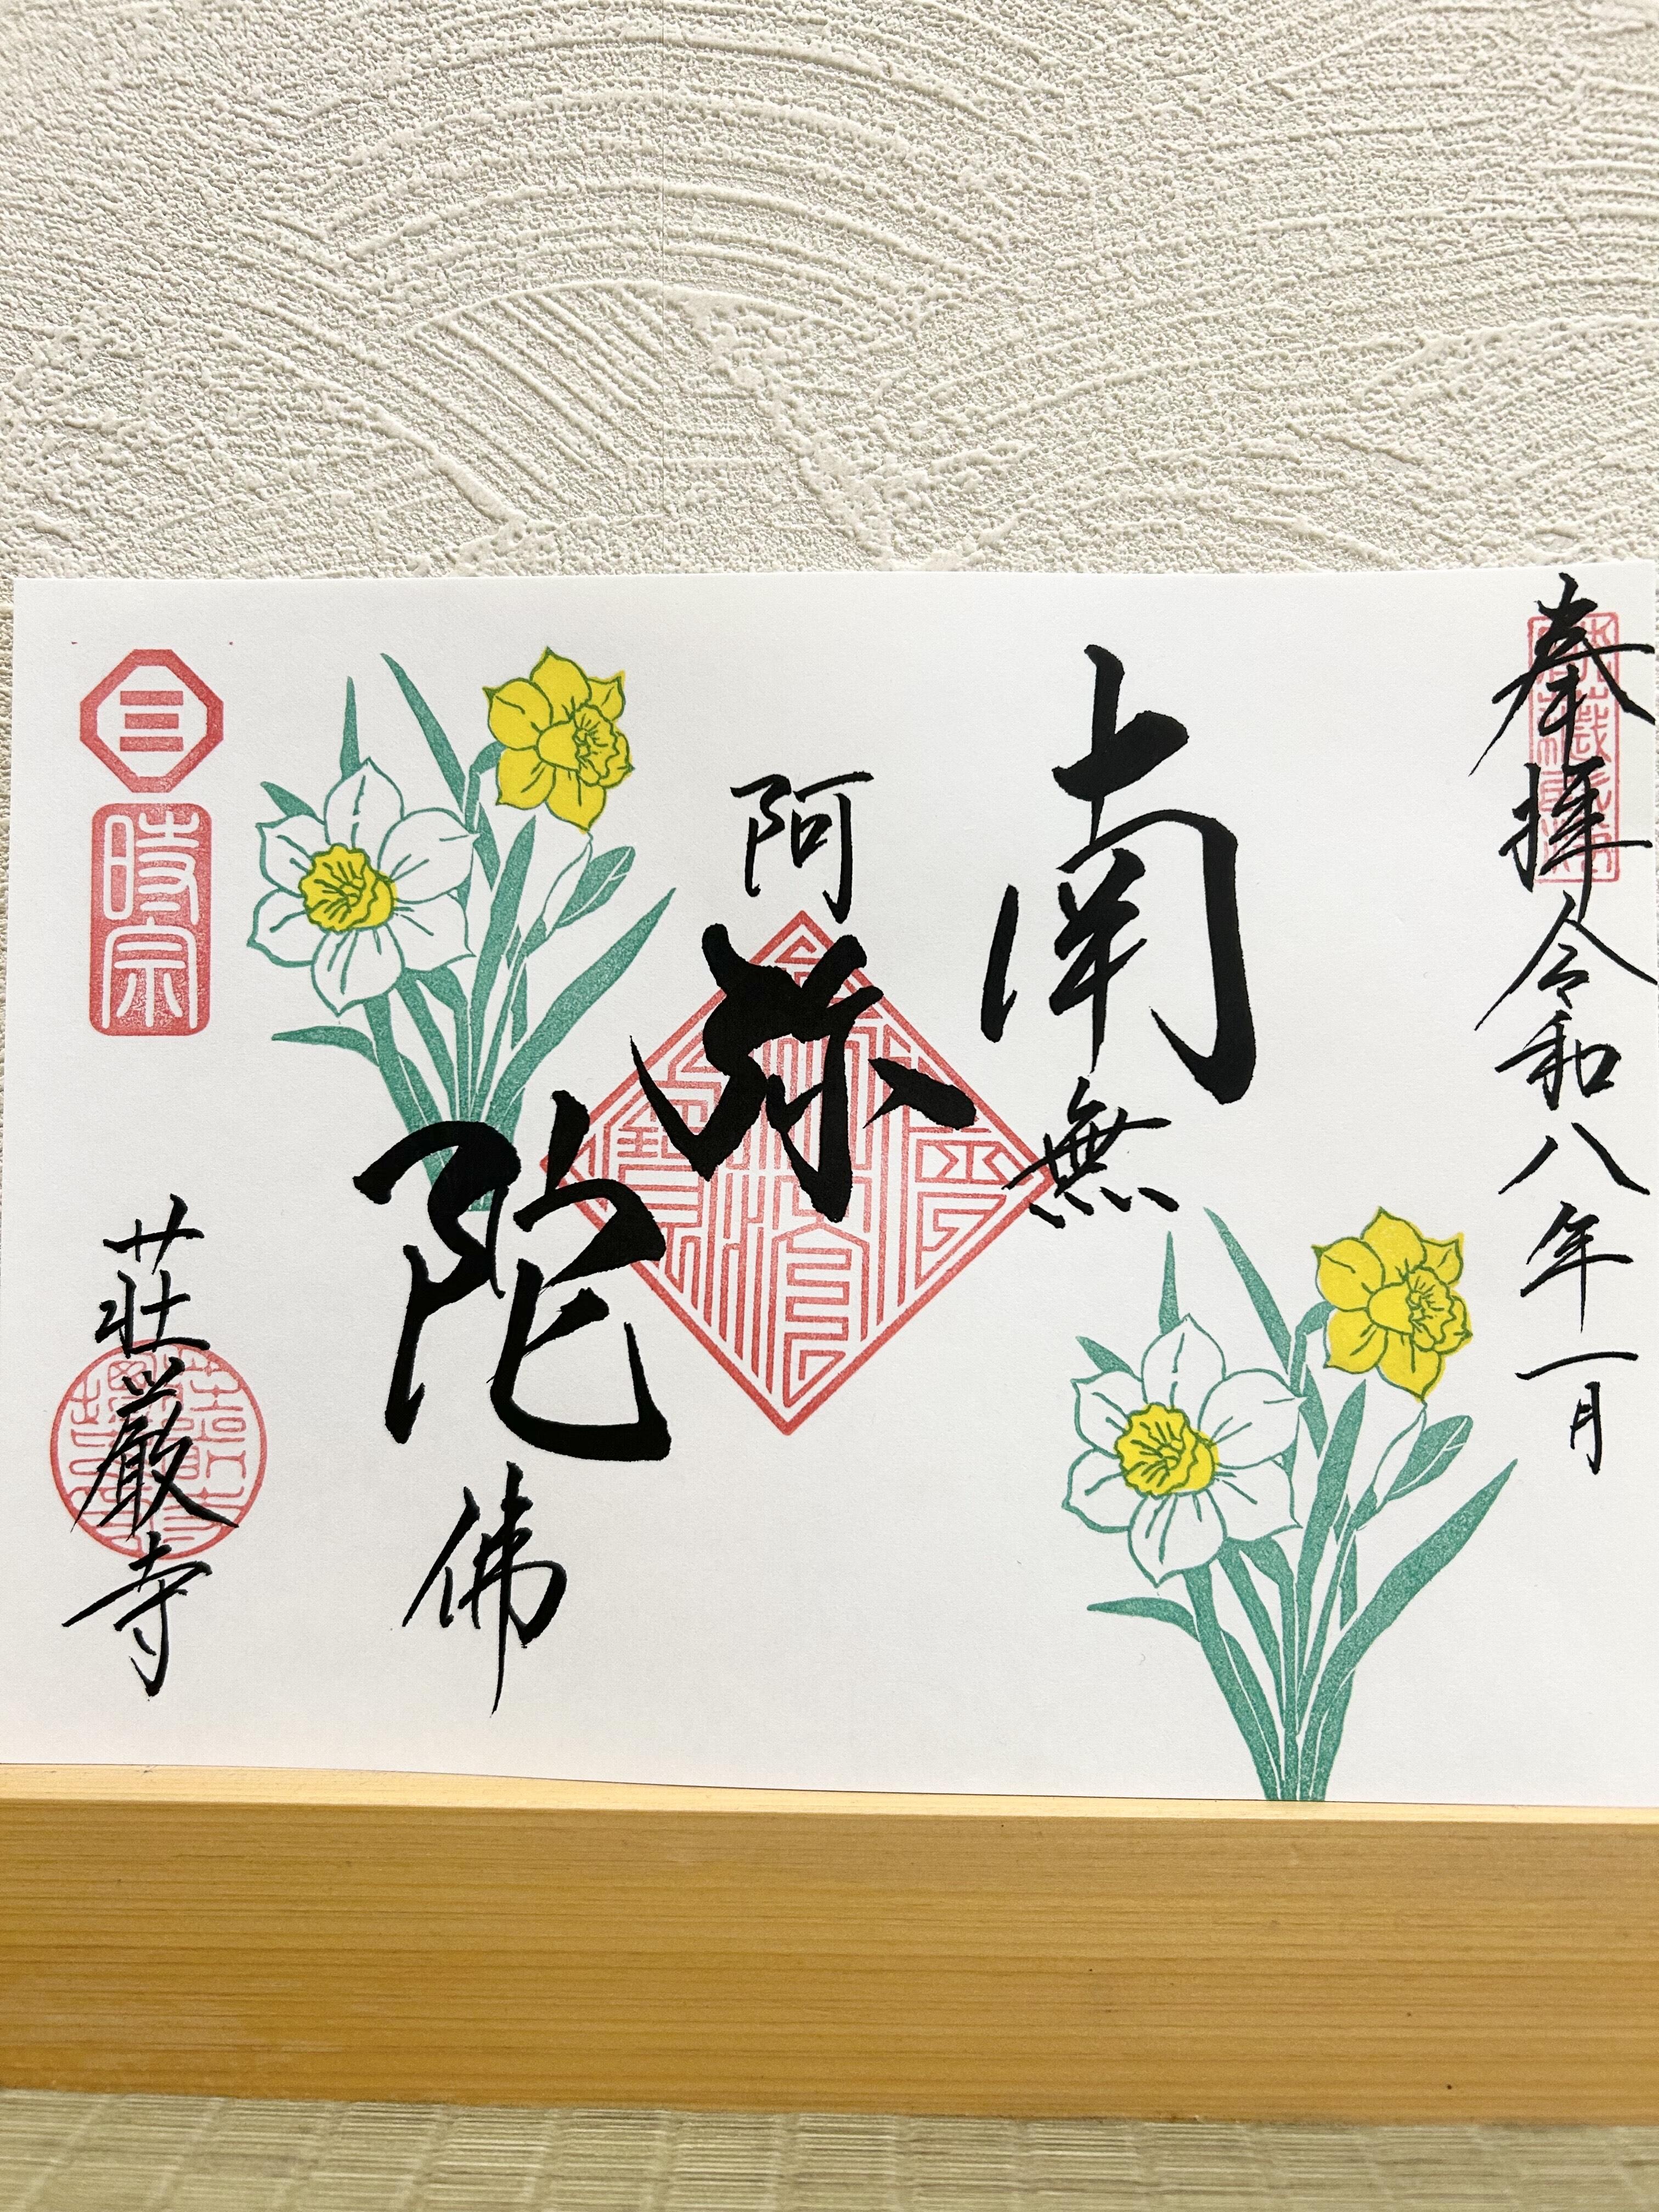 奉拝 令和八年一月
南無
阿弥陀佛
時宗
荘厳寺